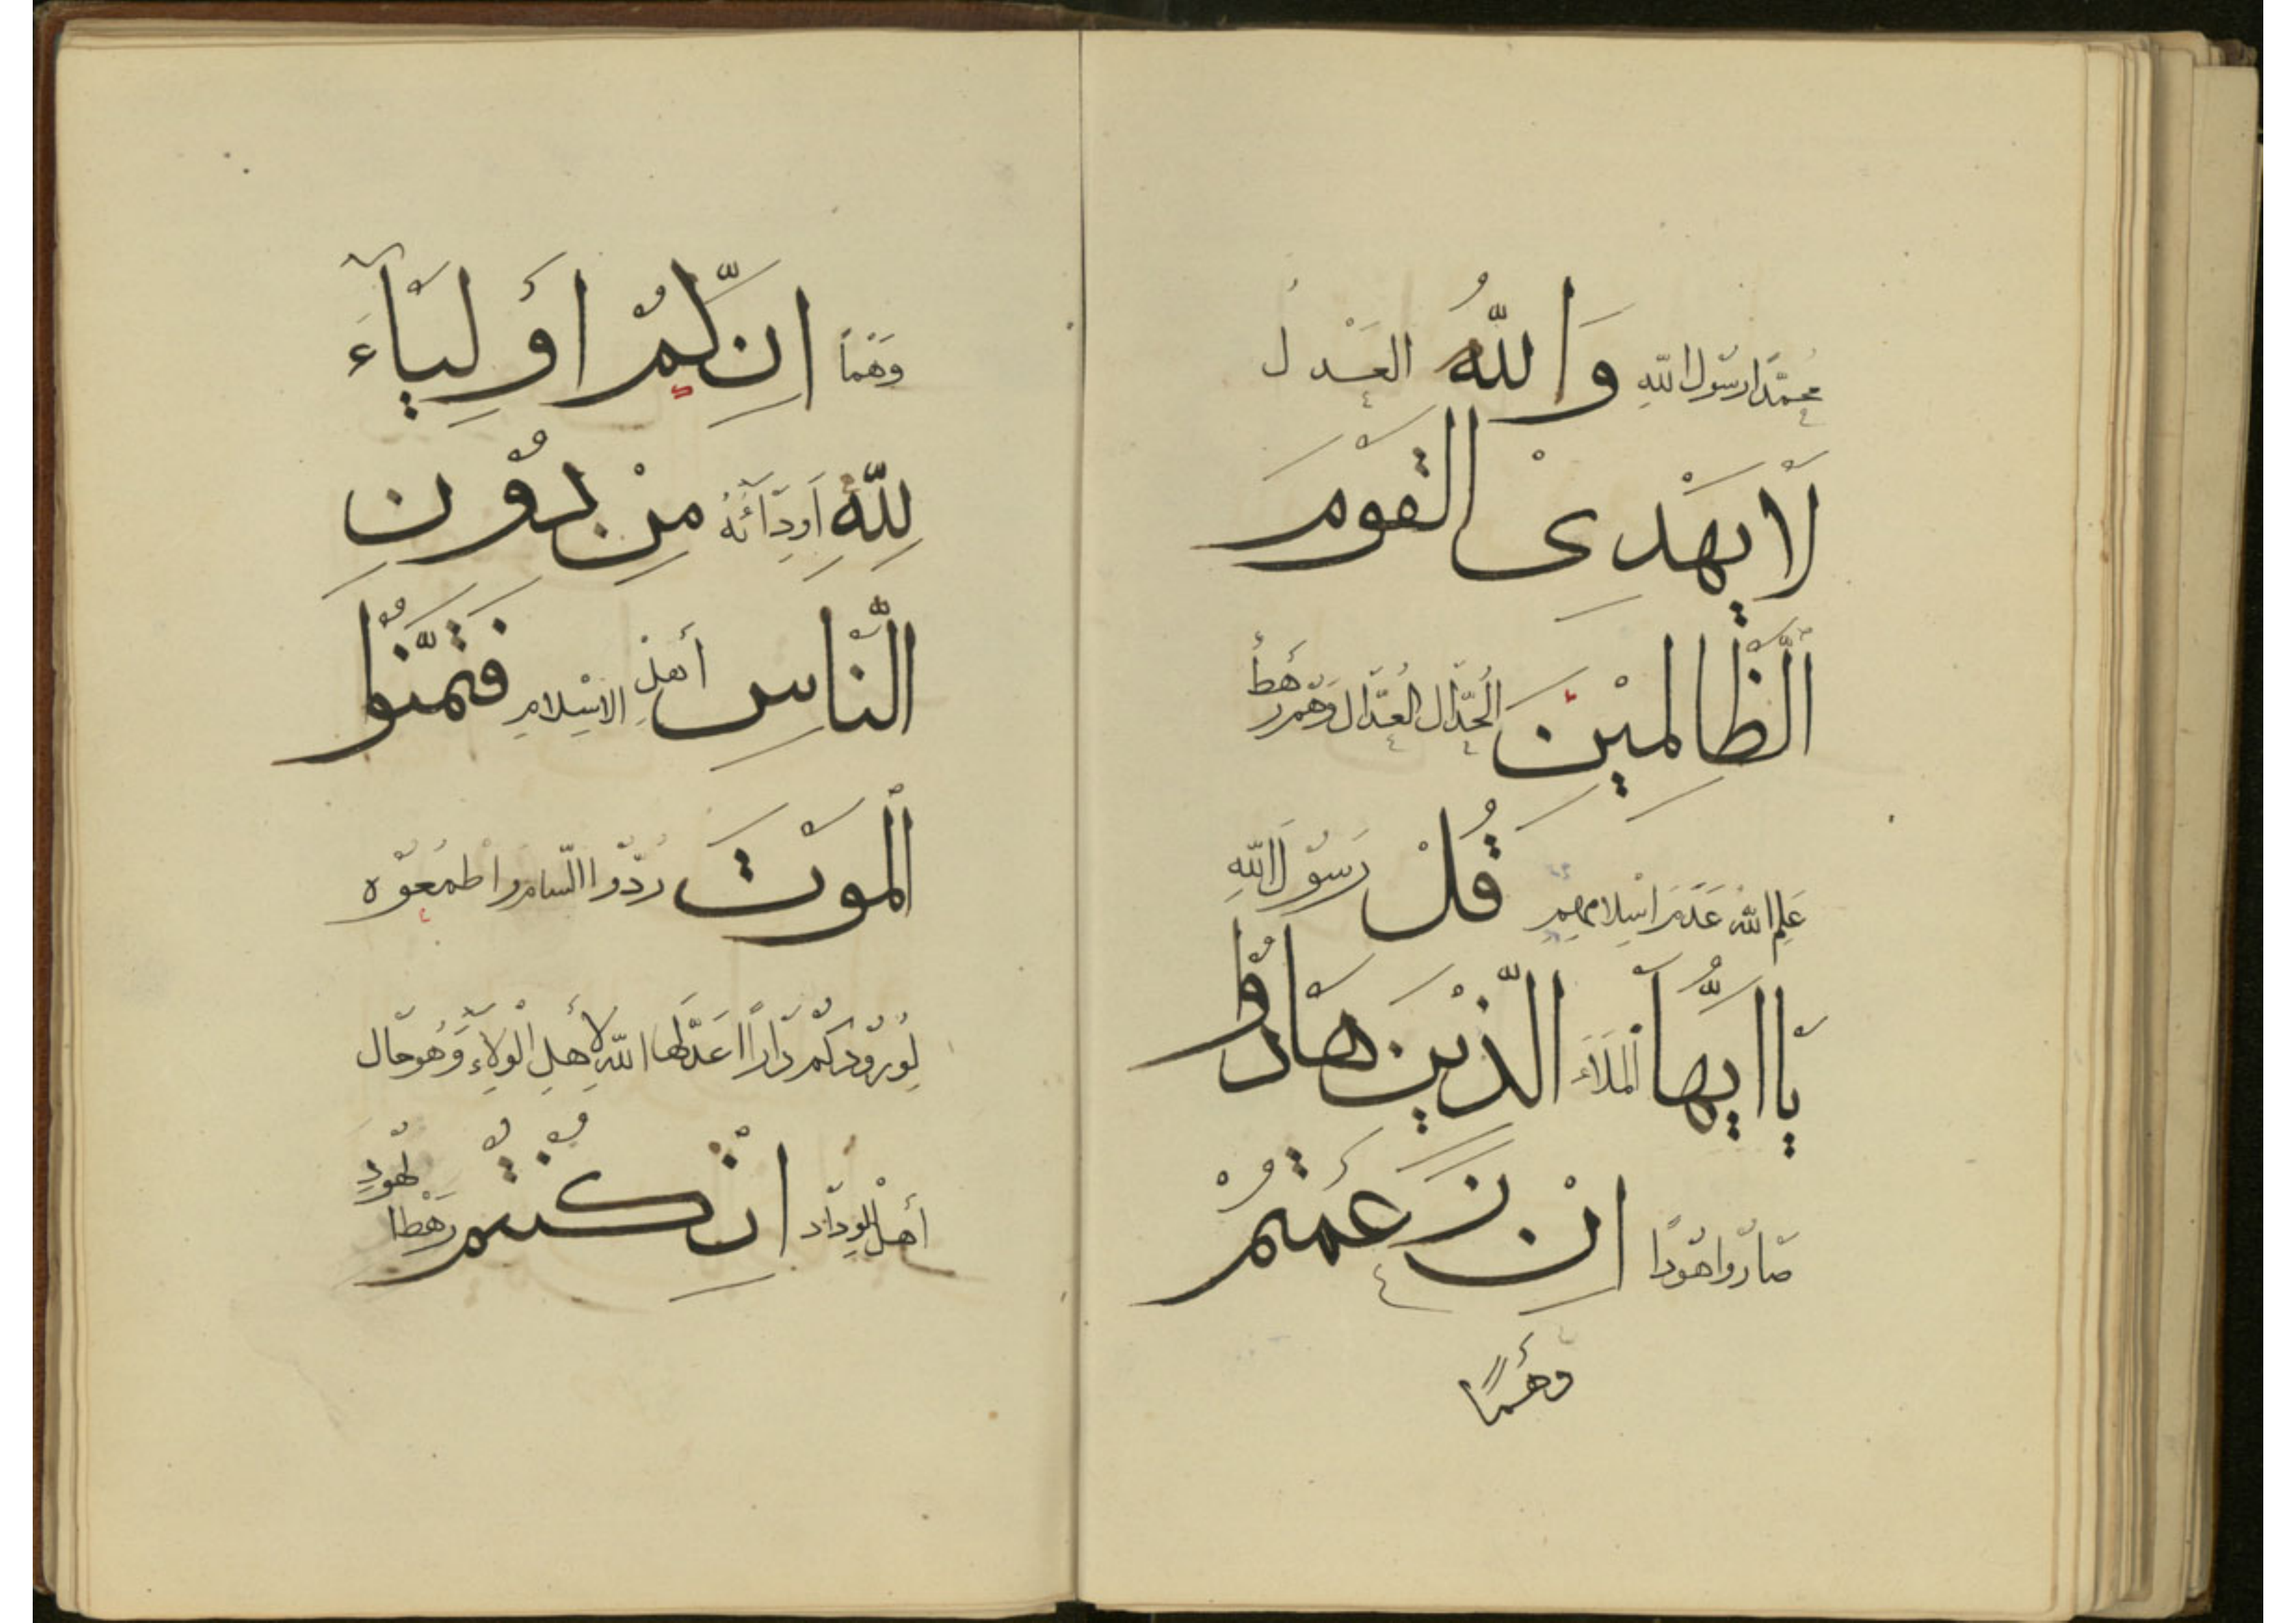 مُحَمَّدًا رَسُولَ اللّٰهِ وَاللّٰهُ العَدْلُ
لَا يَهْدِى الْقَوْمَ
الظَّالِمِيْنَ الحُدَّال العُدَّال وَهُمْ رَهْطٌ
عَلِمَ اللّٰهُ عَدَمَ اِسْلَامِهِمْ قُلْ رَسُوْلَ اللّٰهِ
يَا اَيُّهَا الْمَلَاءُ الَّذِيْنَ هَادُوْا
صَارُوا هُوْدًا اِنْ زَعَمْتُمْ
وَهْمًا
وَهْمًا اِنَّكُمْ اَوْلِيَآءَ
لِلّٰهِ اَوِدَّآئُهُ مِنْ دُوْنِ
النَّاسِ أَهْلِ الْاِسْلَامِ فَتَمَنَّوُا
الْمَوْتَ رُدُّوا السَّامَ وَاطْمَعُوْهُ
لِوُرُوْدِكُمْ دَارًا اَعَدَّهَا اللّٰهُ لِأَهْلِ الْوِلَاءِ وَهُوَ حَالُ
أَهْلِ الْوِدَادِ اِنْ كُنْتُمْ رَهْطَ الْهُوْدِ